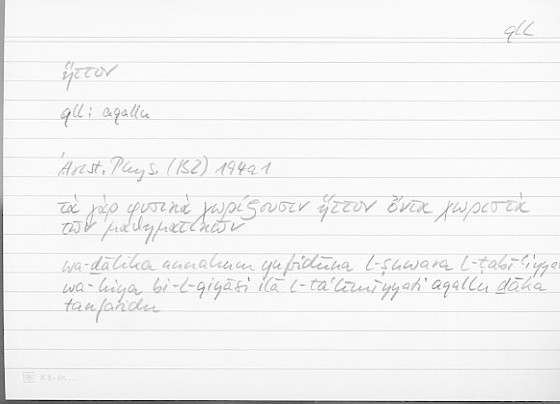 qll
ἧττον
qll: aqallu
Arist. Phys. (B2) 194a1
τὰ γὰρ φυσικὰ χωρίζουσιν ἧττον ὄντα χωριστὰ
τῶν μαθηματικῶν
wa-ḏālika annahum yufridūna l-ṣuwara l-ṭabīʿiyya
wa-hiya bi-l-qiyāsi ilā l-taʿlīmiyyati aqallu ḏāka